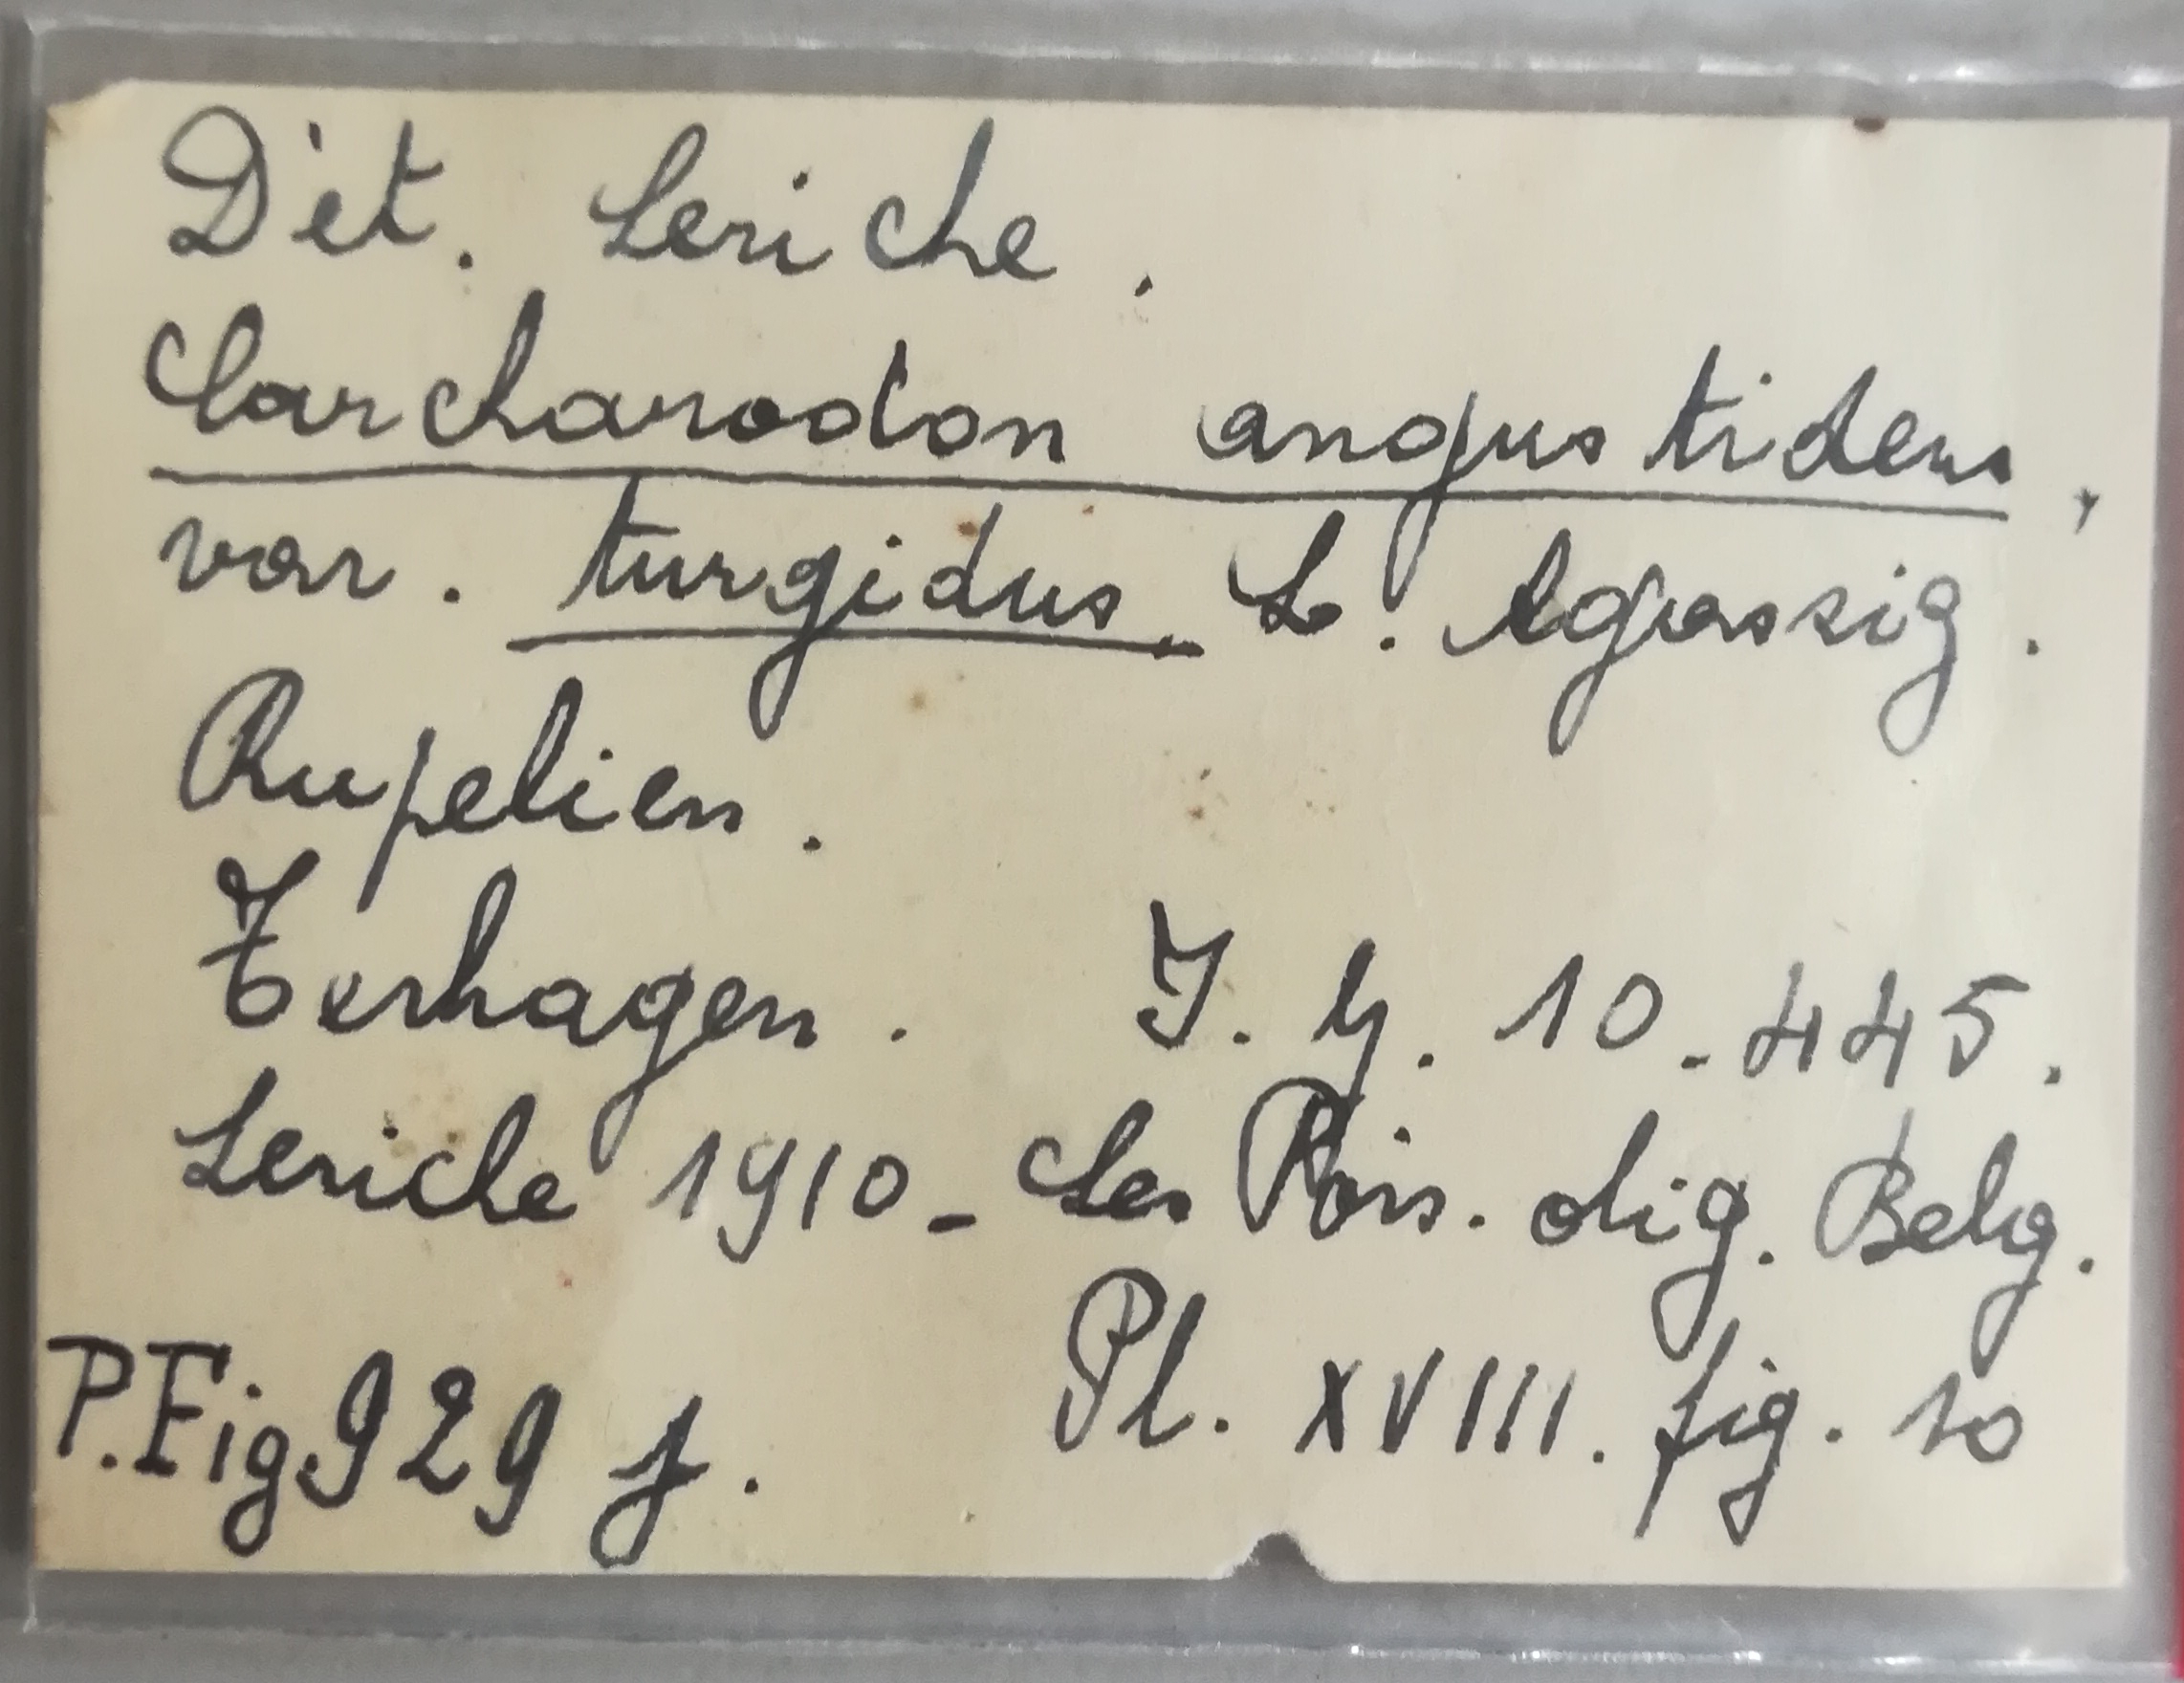 Dét. Leriche.
Carcharodon angustidens,
var. turgidus. L. Agassiz.
Rupelien.
Terhagen. I. G. 10.445.
Leriche 1910 - Les Pois. olig. Belg.
P.Fig.929 f. Pl. XVIII. fig. 10